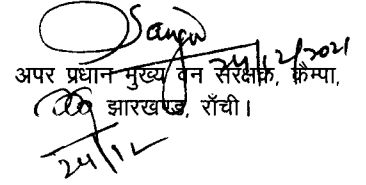 Sanjiv
24/12/2021
अपर प्रधान मुख्य वन संरक्षक, कैम्पा,
झारखण्ड, राँची।
24/12